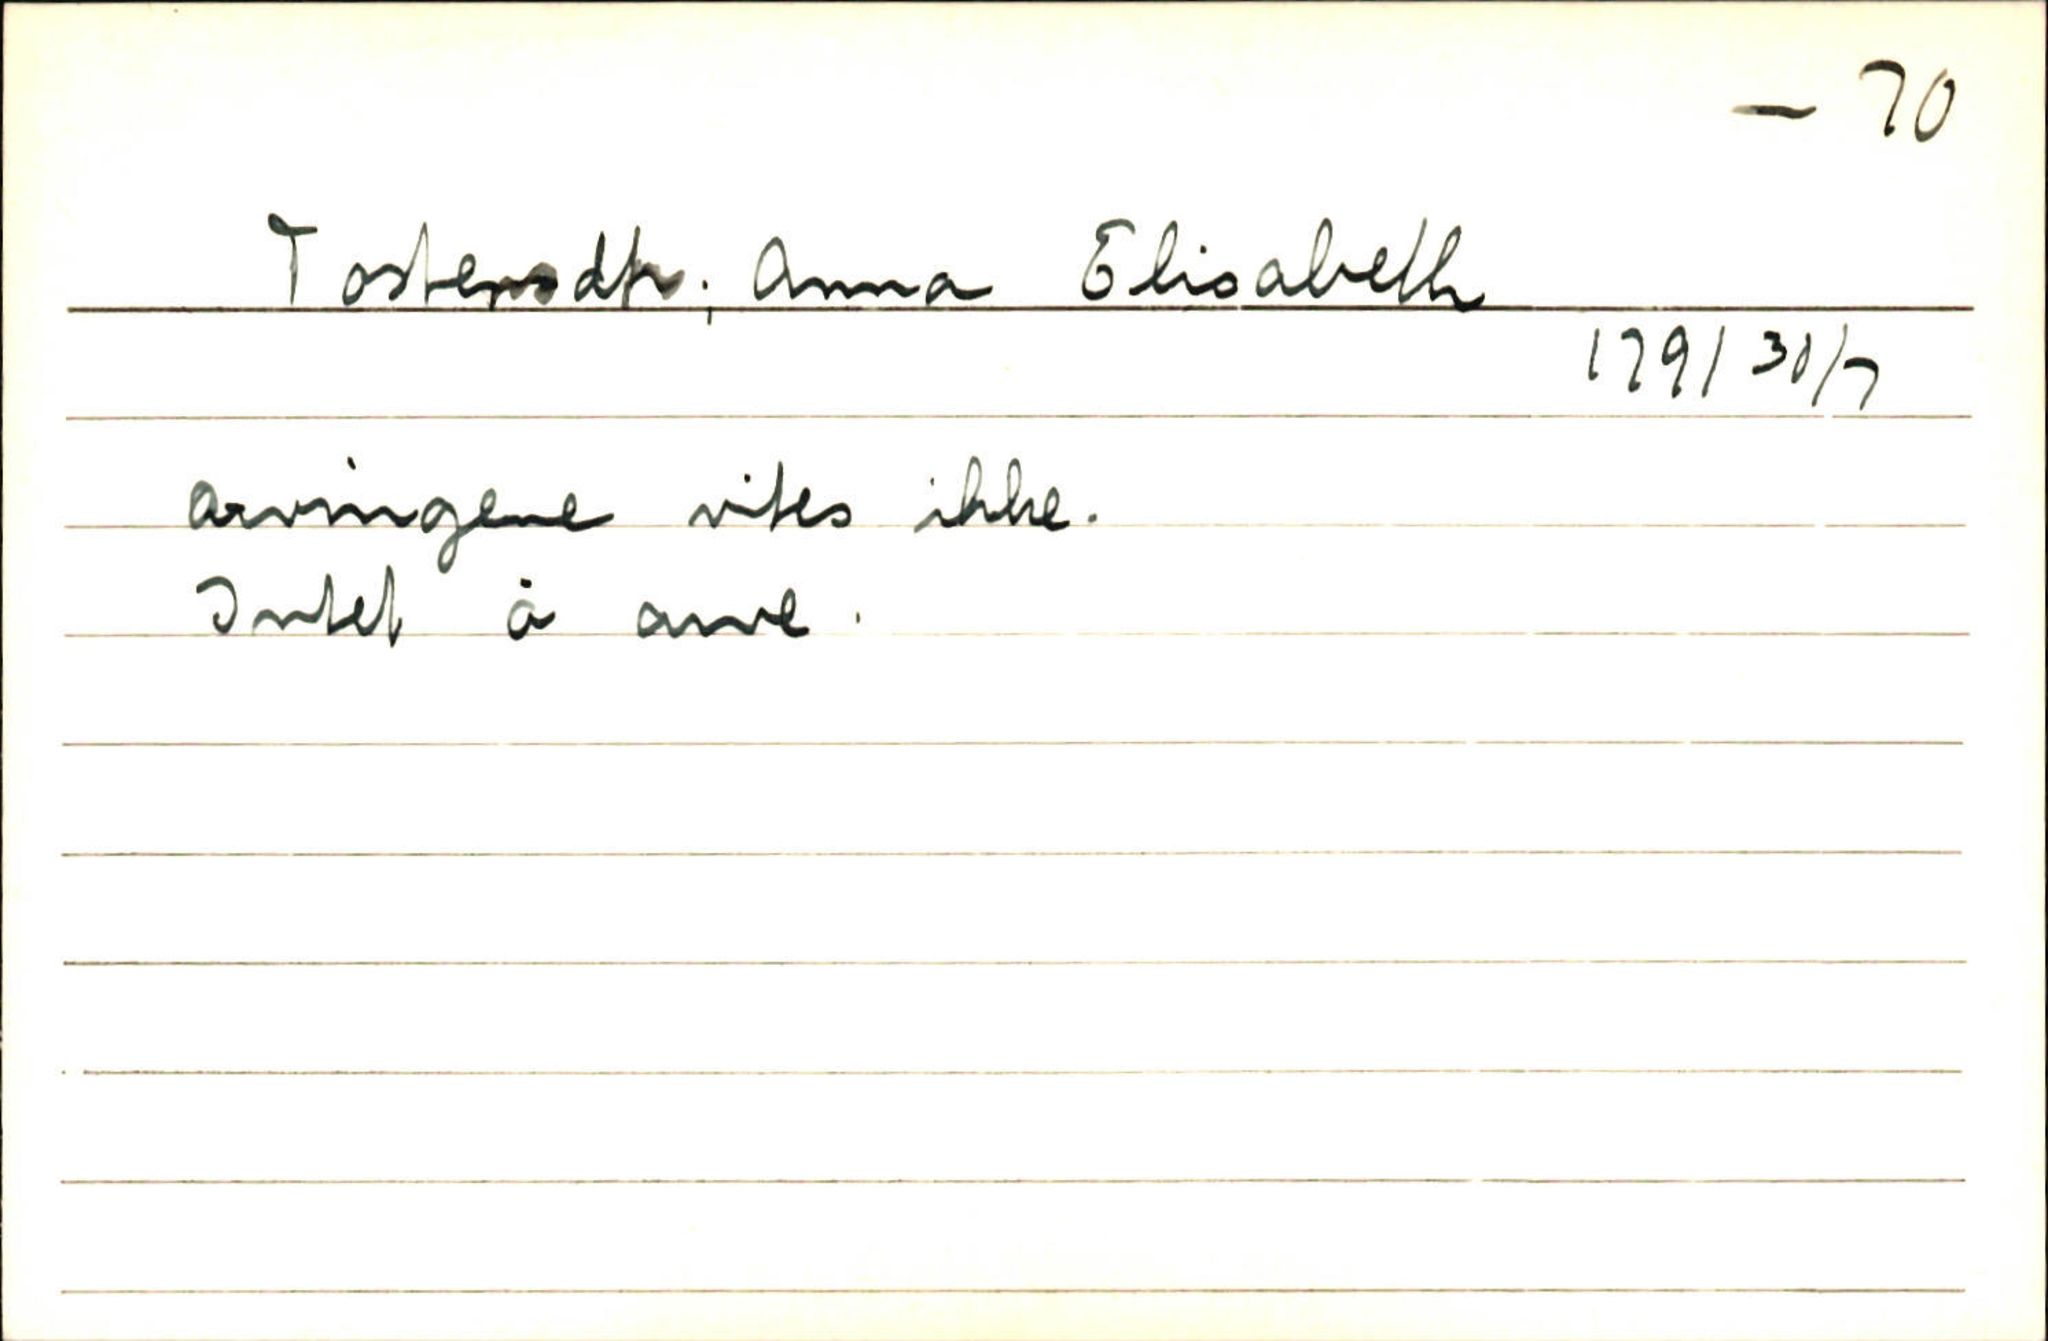 — 70
Tostensdtr., Anna Elisabeth
1791 30/7
Arvingene vites ikke.
Intet å arve.